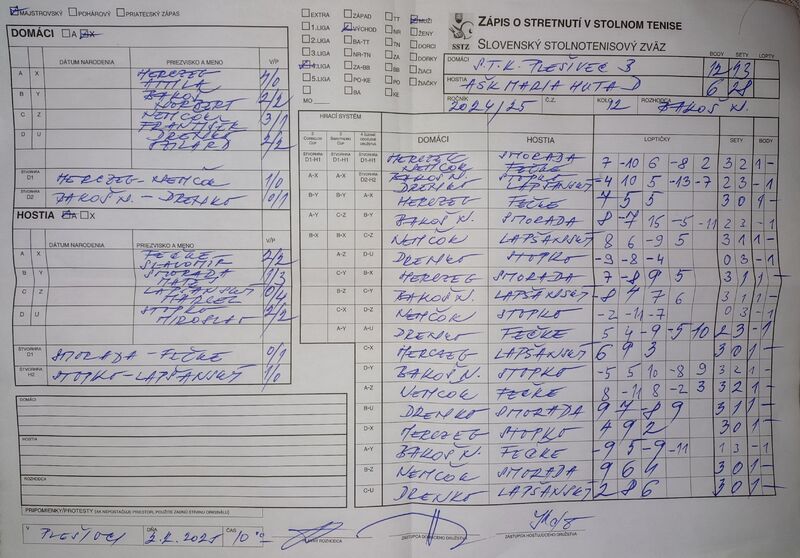 MAJSTROVSKÝ POHÁROVÝ PRIATEĽSKÝ ZÁPAS
DOMÁCI A X
DÁTUM NARODENIA PRIEZVISKO A MENO V/P
A X HERCZEG ATTILA 4/0
B Y BAKOŠ NORBERT 2/2
C Z NEMČOK FRANTIŠEK 3/1
D U DRENKO SZILÁRD 2/2
ŠTVORHRA D1 HERCZEG - NEMČOK 1/0
ŠTVORHRA D2 BAKOŠ N. - DRENKO 0/1
HOSTIA A X
DÁTUM NARODENIA PRIEZVISKO A MENO V/P
A X FEČKE SLAVOMÍR 2/2
B Y SMORADA 1/3
C Z LAPŠANSKÝ MARCEL 0/4
D U STOPKO MIROSLAV 2/2
ŠTVORHRA D1 SMORADA - FEČKE 0/1
ŠTVORHRA H2 STOPKO - LAPŠANSKÝ 1/0
DOMÁCI
HOSTIA
ROZHODCA
PRIPOMIENKY/PROTESTY (AK NEPOSTAČUJE PRIESTOR, POUŽITE ZADNÚ STRANU ORIGINÁLU)
V PLEŠIVCI DŇA 2.2.2025 ČAS 10°°
HLAVNÝ ROZHODCA ZÁSTUPCA DOMÁCEHO DRUŽSTVA ZÁSTUPCA HOSŤUJÚCEHO DRUŽSTVA
EXTRA ZÁPAD TT MUŽI
1.LIGA VÝCHOD NR ŽENY
2.LIGA BA-TT TN DORCI
3.LIGA NR-TN ZA DORKY
4.LIGA ZA-BB BB ŽIACI
5.LIGA PO-KE PO ŽIAČKY
BA KE
MO
SSTZ
ZÁPIS O STRETNUTÍ V STOLNOM TENISE
SLOVENSKÝ STOLNOTENISOVÝ ZVÄZ
BODY SETY LOPTY
DOMÁCI S.T.K. PLEŠIVEC B 12 43
HOSTIA AŠK MARIA HUTA D 6 28
ROČNÍK 2024/25 Č.Z. KOLO 12 ROZHODCA BAKOŠ N.
HRACÍ SYSTÉM
DOMÁCI HOSTIA LOPTIČKY SETY BODY
ŠTVORHRA D1-H1 ŠTVORHRA D1-H1 ŠTVORHRA D1-H1 HERCZEG NEMČOK SMORADA FEČKE 7 -10 6 -8 2 3 2 1 -
A-X A-X ŠTVORHRA D2-H2 BAKOŠ N. DRENKO STOPKO LAPŠANSKÝ -4 10 5 -13 -7 2 3 - 1
B-Y B-Y A-X HERCZEG FEČKE 4 5 5 3 0 1 -
A-Y C-Z B-Y BAKOŠ N. SMORADA 8 -7 15 -5 -11 2 3 - 1
B-X B-X C-Z NEMČOK LAPŠANSKÝ 8 6 -9 5 3 1 1 -
A-Z D-U DRENKO STOPKO -9 -8 -4 0 3 - 1
C-Y B-X HERCZEG SMORADA 7 -8 9 5 3 1 1 -
B-Z C-Y BAKOŠ N. LAPŠANSKÝ -8 4 7 6 3 1 1 -
C-X D-Z NEMČOK STOPKO -2 -11 -7 0 3 - 1
A-Y A-U DRENKO FEČKE 5 4 -9 -5 10 2 3 - 1
C-X HERCZEG LAPŠANSKÝ 6 9 3 3 0 1 -
D-Y BAKOŠ N. STOPKO -5 5 10 -8 9 3 2 1 -
A-Z NEMČOK FEČKE 8 -11 8 -2 3 3 2 1 -
B-U DRENKO SMORADA 9 7 -8 9 3 1 1 -
D-X HERCZEG STOPKO 4 9 2 3 0 1 -
A-Y BAKOŠ N. FEČKE -9 5 -9 -11 1 3 - 1
B-Z NEMČOK SMORADA 9 6 4 3 0 1 -
C-U DRENKO LAPŠANSKÝ 2 8 6 3 0 1 -